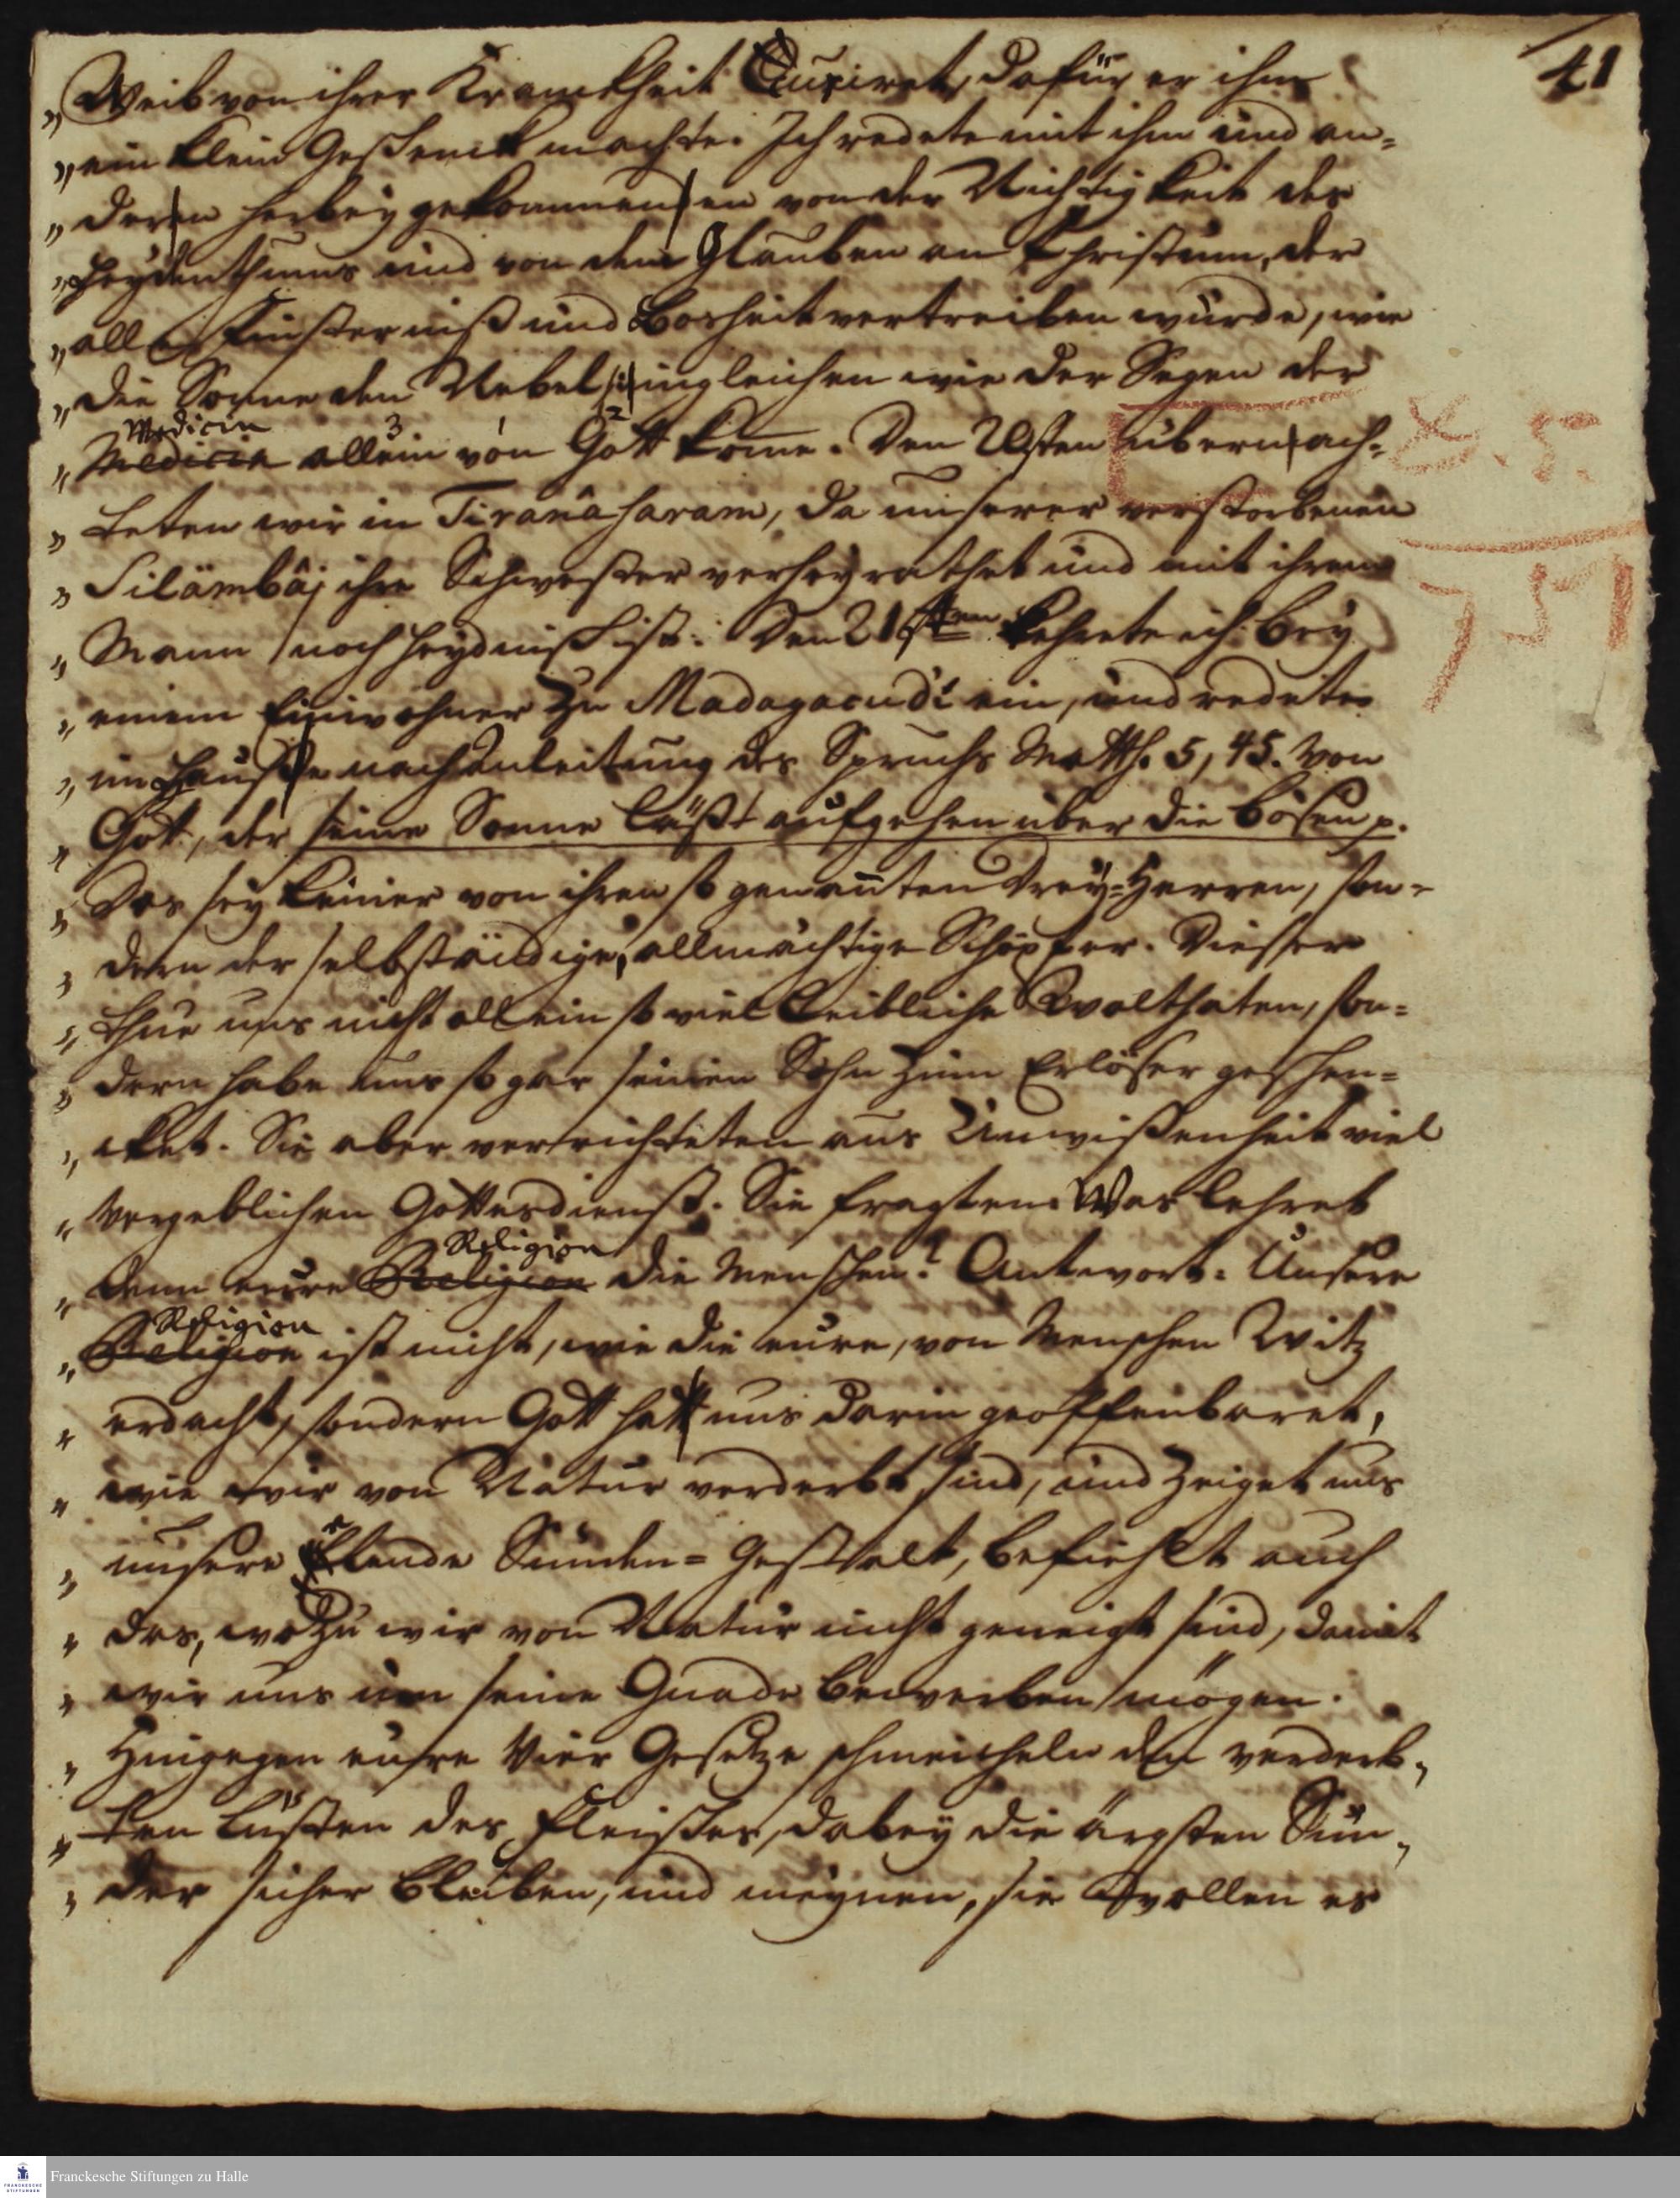 41
„ Weib von ihrer Kranckheit Curiret, dafür er ihm
„ ein klein Geschenck machte. Ich redete mit ihm und an=
„ deren herbey gekommenen von der Nichtigkeit des
„ Heydenthums und von dem Glauben an Christum, der
„ alle Finsterniß und Bosheit vertreiben würde, wie
„ die Sonne den Nebel; ingleichen wie der Segen der
Medicin 3 1 2
„ Medicin allein von Gott kom̄e. Den 20sten übernach=
8. 5.
„ teten wir in Tiranâsaram, da unserer verstorbenen
„ Silâmbâj ihre Schwester verheyrathet und mit ihrem
751
„ Mann noch heydnisch ist. Den 21sten kehrete ich bey
„ einem Einwohner zu Madagacudi ein, und redete
„ im Hause nach Anleitung des Spruchs Matth. 5, 45. von
„ Gott, der seine Sonne läßt aufgehen über die Bösen p.
„ Das sey keiner von ihren so genannten drey=Herren, son=
„ dern der selbständige, allmächtige Schöpfer. Dieser
„ thue uns nicht allein so viel leibliche Wolthaten, son=
„ dern habe uns so gar seinen Sohn zum Erlöser geschen=
„ cket. Sie aber verrichteten aus Unwißenheit viel
„ vergeblichen Gottesdienst. Sie fragten: Was lehret
Religion
„ denn eure Religion die Menschen? Antwort: Unsere
Religion
„ Religion ist nicht, wie die eure, von Menschen Witz
„ erdacht, sondern Gott hat uns darin geoffenbaret,
„ wie wir von Natur verderbt sind, und zeiget uns
„ unsere elende Sünden=Gestalt, befiehlt auch
„ das, wozu wir von Natur nicht geneigt sind, damit
„ wir uns um seine Gnade bewerben mögen.
„ Hingegen eure Vier Gesetze schmeicheln den verderb=
„ ten Lüsten des Fleisches, dabey die ärgsten Sün=
„ der sicher bleiben, und meynen, sie wollen es
Franckesche Stiftungen zu Halle